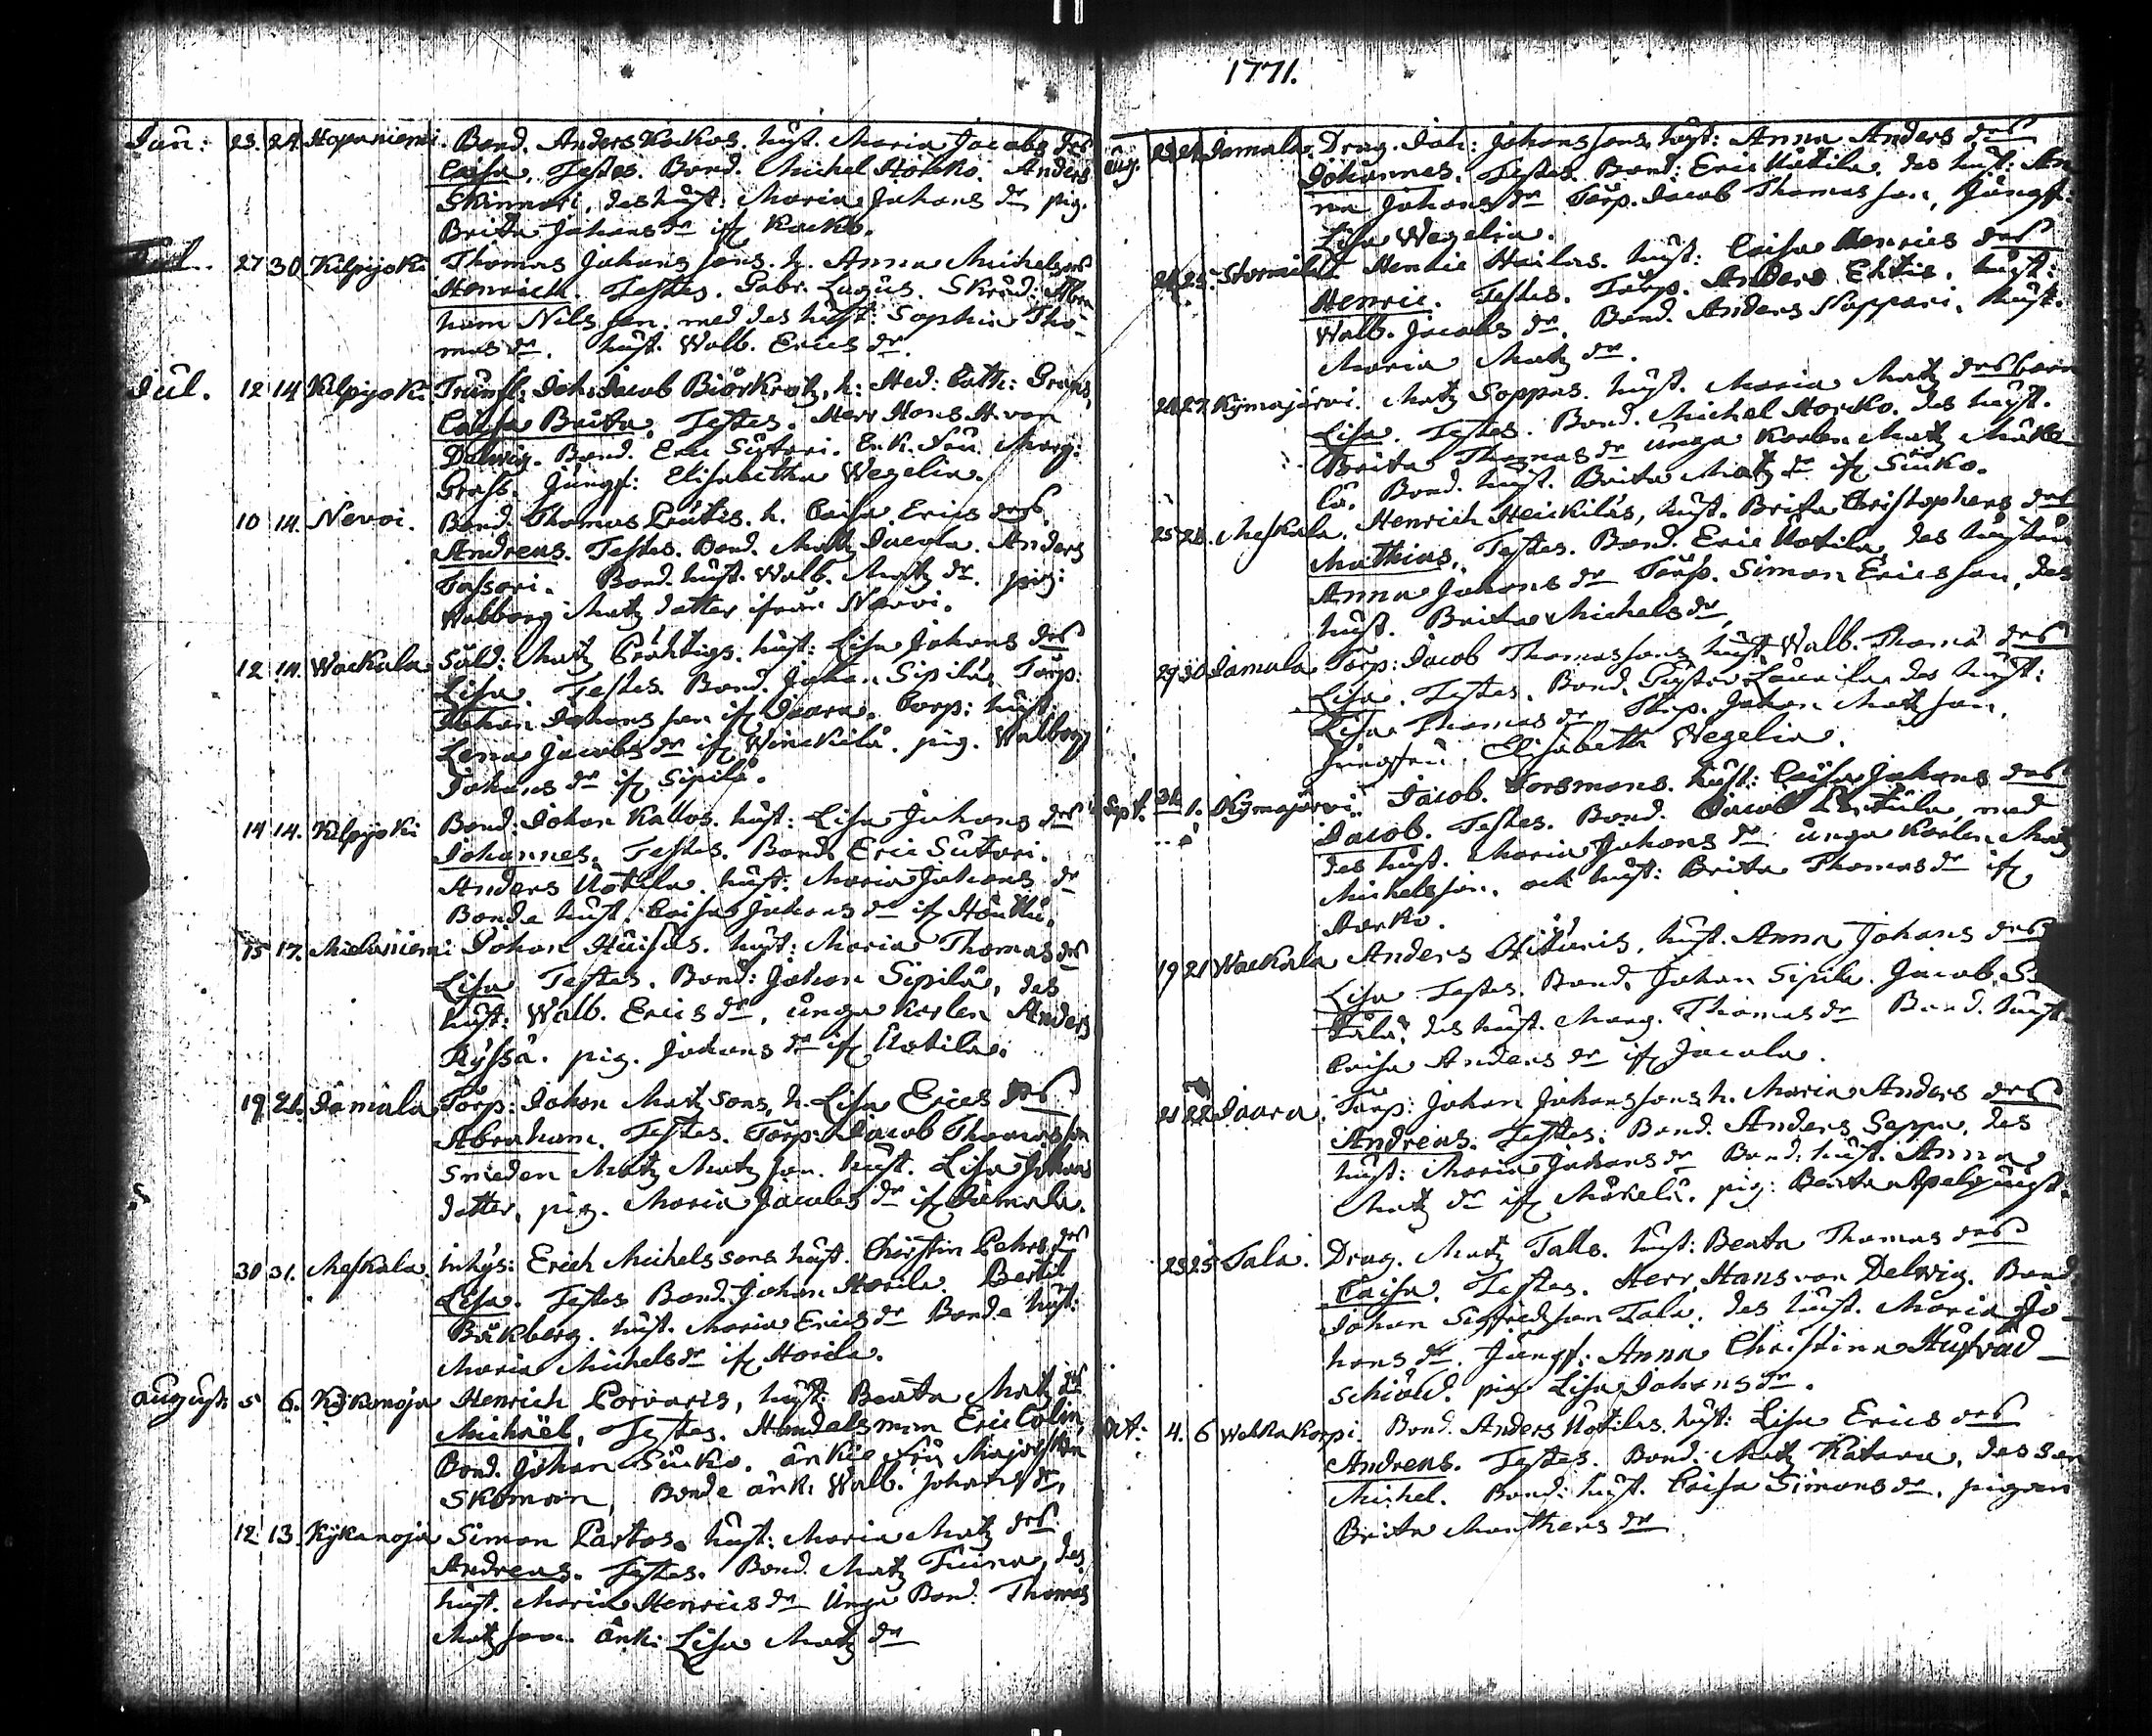 1771.
Jan: 23. 24. Haponiemi. Bond. Anders Kakos. hust. Maria Jacobs drs
Caisa. Testes. Bond. Michel Horko. Anders
Skinnari, des hust: Maria Johans dr pig.
Brita Johans dr if Kacko.
27 30. Kilpijoki Thomas Johanssons. h. Anna Michels drs
Henrich. Testes. Gabr. Lagus. Skräd: Abra
ham Nilsson. med des hust: Sophia Tho-
mas dr. hust. Walb. Erics dr.
Jul. 12 14 Kilpijoki Trumsl: Joh: Jacob Biörkroth, h: Hed: Cath: Grans,
Caisa Brita. Testes. Herr Hans H. von
Delwig. Bond. Eric Sutari. Enk. Fru Marg:
Grass. Jungf: Elisabetha Wegelia.
10 14. Nervoi. Bond. Thomas Prutis. h. Caisa Erics drs.
Andreas. Testes. Bond. Matz Jacola. Anders
Tassari. Bond. hust. Walb. Matz dr. pig:
Walborg Matz dotter ifrån Nervoi.
12 14. Wackala Sold: Matz Präktigs. hust: Lisa Johans drs
Lisa. Testes. Bond. Johan Sipilä, Torp:
Johan Johansson if Jaara. Corp: hust:
Lena Jacobs dr if Winckilä. pig. Walborg
Johans dr if Sipilä.
14 14. Kilpijoki Bond: Johan Kallos. hust: Lisa Johans drs
Johannes. Testes. Bond. Eric Sutari.
Anders Uotila. hust: Maria Johans dr
Bonde hust. Caisa Johans dr if
15 17. Mielaniemi Johan Huisus. hust: Maria Thomas drs
Lisa Testes. Bond: Johan Sipilä, des
hust: Walb. Erics dr, unga karlen Anders
Ryssä. pig. Johans dr if Uotila.
19. 21. Jamala Torp: Johan Matzsons, h. Lisa Erics drs
Abraham. Testes. Torp: Jacob Thomasson
smeden Matz Matzson. hust. Lisa Johans
dotter, pig. Maria Jacobs dr if Jamala.
30 31. Meskala. Inhys: Erich Michelssons hust. Christin Pehrs drs
Lisa. Testes Bond. Johan Horila. Bertil
Bökberg. hust. Maria Erics dr Bonde hust:
Maria Michels dr if Horila.
august. 5 6. Kykanoja Henrich Porvaris, hust: Beata Matz drs
Michaël, Testes. Handelsman Eric Colin,
Bond. Johan Suko. änkie Fru Majorskan
Skoman, Bonde änk: Walb. Johans dr,
12 13. Kykanoja Simon Partos. hust: Maria Matz drs
Andreas. Testes. Bond. Matz Tuna, des
hust. Maria Henrics dr Unga Bond: Thomas
Matzson. änk: Lisa Matz dr
Aug. 23 24 Jamala. Drag. Joh: Johanssons, hust: Anna Anders drs
Johannes. Testes. Bond: Eric Uotila, des hust: An
na Johans dr Torp. Jacob Thomasson, Jungf:
Lisa Wegelia.
24 25. Stormila Henric Hailas. hust: Caisa Henrics drs
Henric. Testes. Torp. Anders Ektis. hust:
Walb. Jacobs dr. Bond. Anders Nappari, hust.
Maria Matz dr.
24 27. Kymajärvi. Matz Soppas. hust. Maria Matz drs barn
Lisa. Testes. Bond. Michel Horko. des hust.
Brita Thomas dr unga karlen Matz Mäke-
lä. Bond. hust. Brita Matz dr if Suko.
25 28. Meskala. Henrich Heickiläs, hust. Brita Christophers drs
Matthias. Testes. Bond. Eric Uotila, des hustru
Anna Johans dr Torp. Simon Ericsson, des
hust. Brita Michels dr,
29 30 Jamala Torp: Jacob Thomassons hust Walb. Thoma drs
Lisa. Testes. Bond. Gustav Laurila, des hust:
Lisa Thomas dr, Torp. Johan Matzson,
Jungfru. Elisabeth Wegelia.
Sept. 31 1. Kymajärvi Jacob Forsmans. hust: Caisa Johans drs
Jacob. Testes. Bond. Jacob med
des hust. Maria Johans dr unga karlen Matz
Michelsson, och hust: Brita Thomas dr if
Horko.
19 21 Wackala Anders hust. Anna Johans drs
Lisa Testes. Bond. Johan Sipilä. Jacob
des hust. Marg. Thomas dr Bond. hust.
Caisa Anders dr if Jacola.
21 22 Jaara. Torp: Johan Johanssons h. Maria Anders drs
Andreas. Testes. Bond. Anders Seppä, des
hust: Maria Johans dr Bond: hust. Anna
Matz dr if Mäkelä. pig: Beata Apelquist.
23 25 Tala. Drag. Matz Talls. hust: Beata Thomas drs
Caisa. Testes. Herr Hans von Delwig. Bond:
Johan Sigfredson Tala. des hust. Maria Jo-
hans dr. Jungf: Anna Christina
schiöld. pig Lisa Johans dr.
Oct: 4. 6 Wahkakorpi. Bond. Anders Uotilas. hust: Lisa Erics drs
Andreas. Testes. Bond: Matz Katara, des son
Michel. Bond: hust. Caisa Simons dr, pigan
Brita Marthens dr